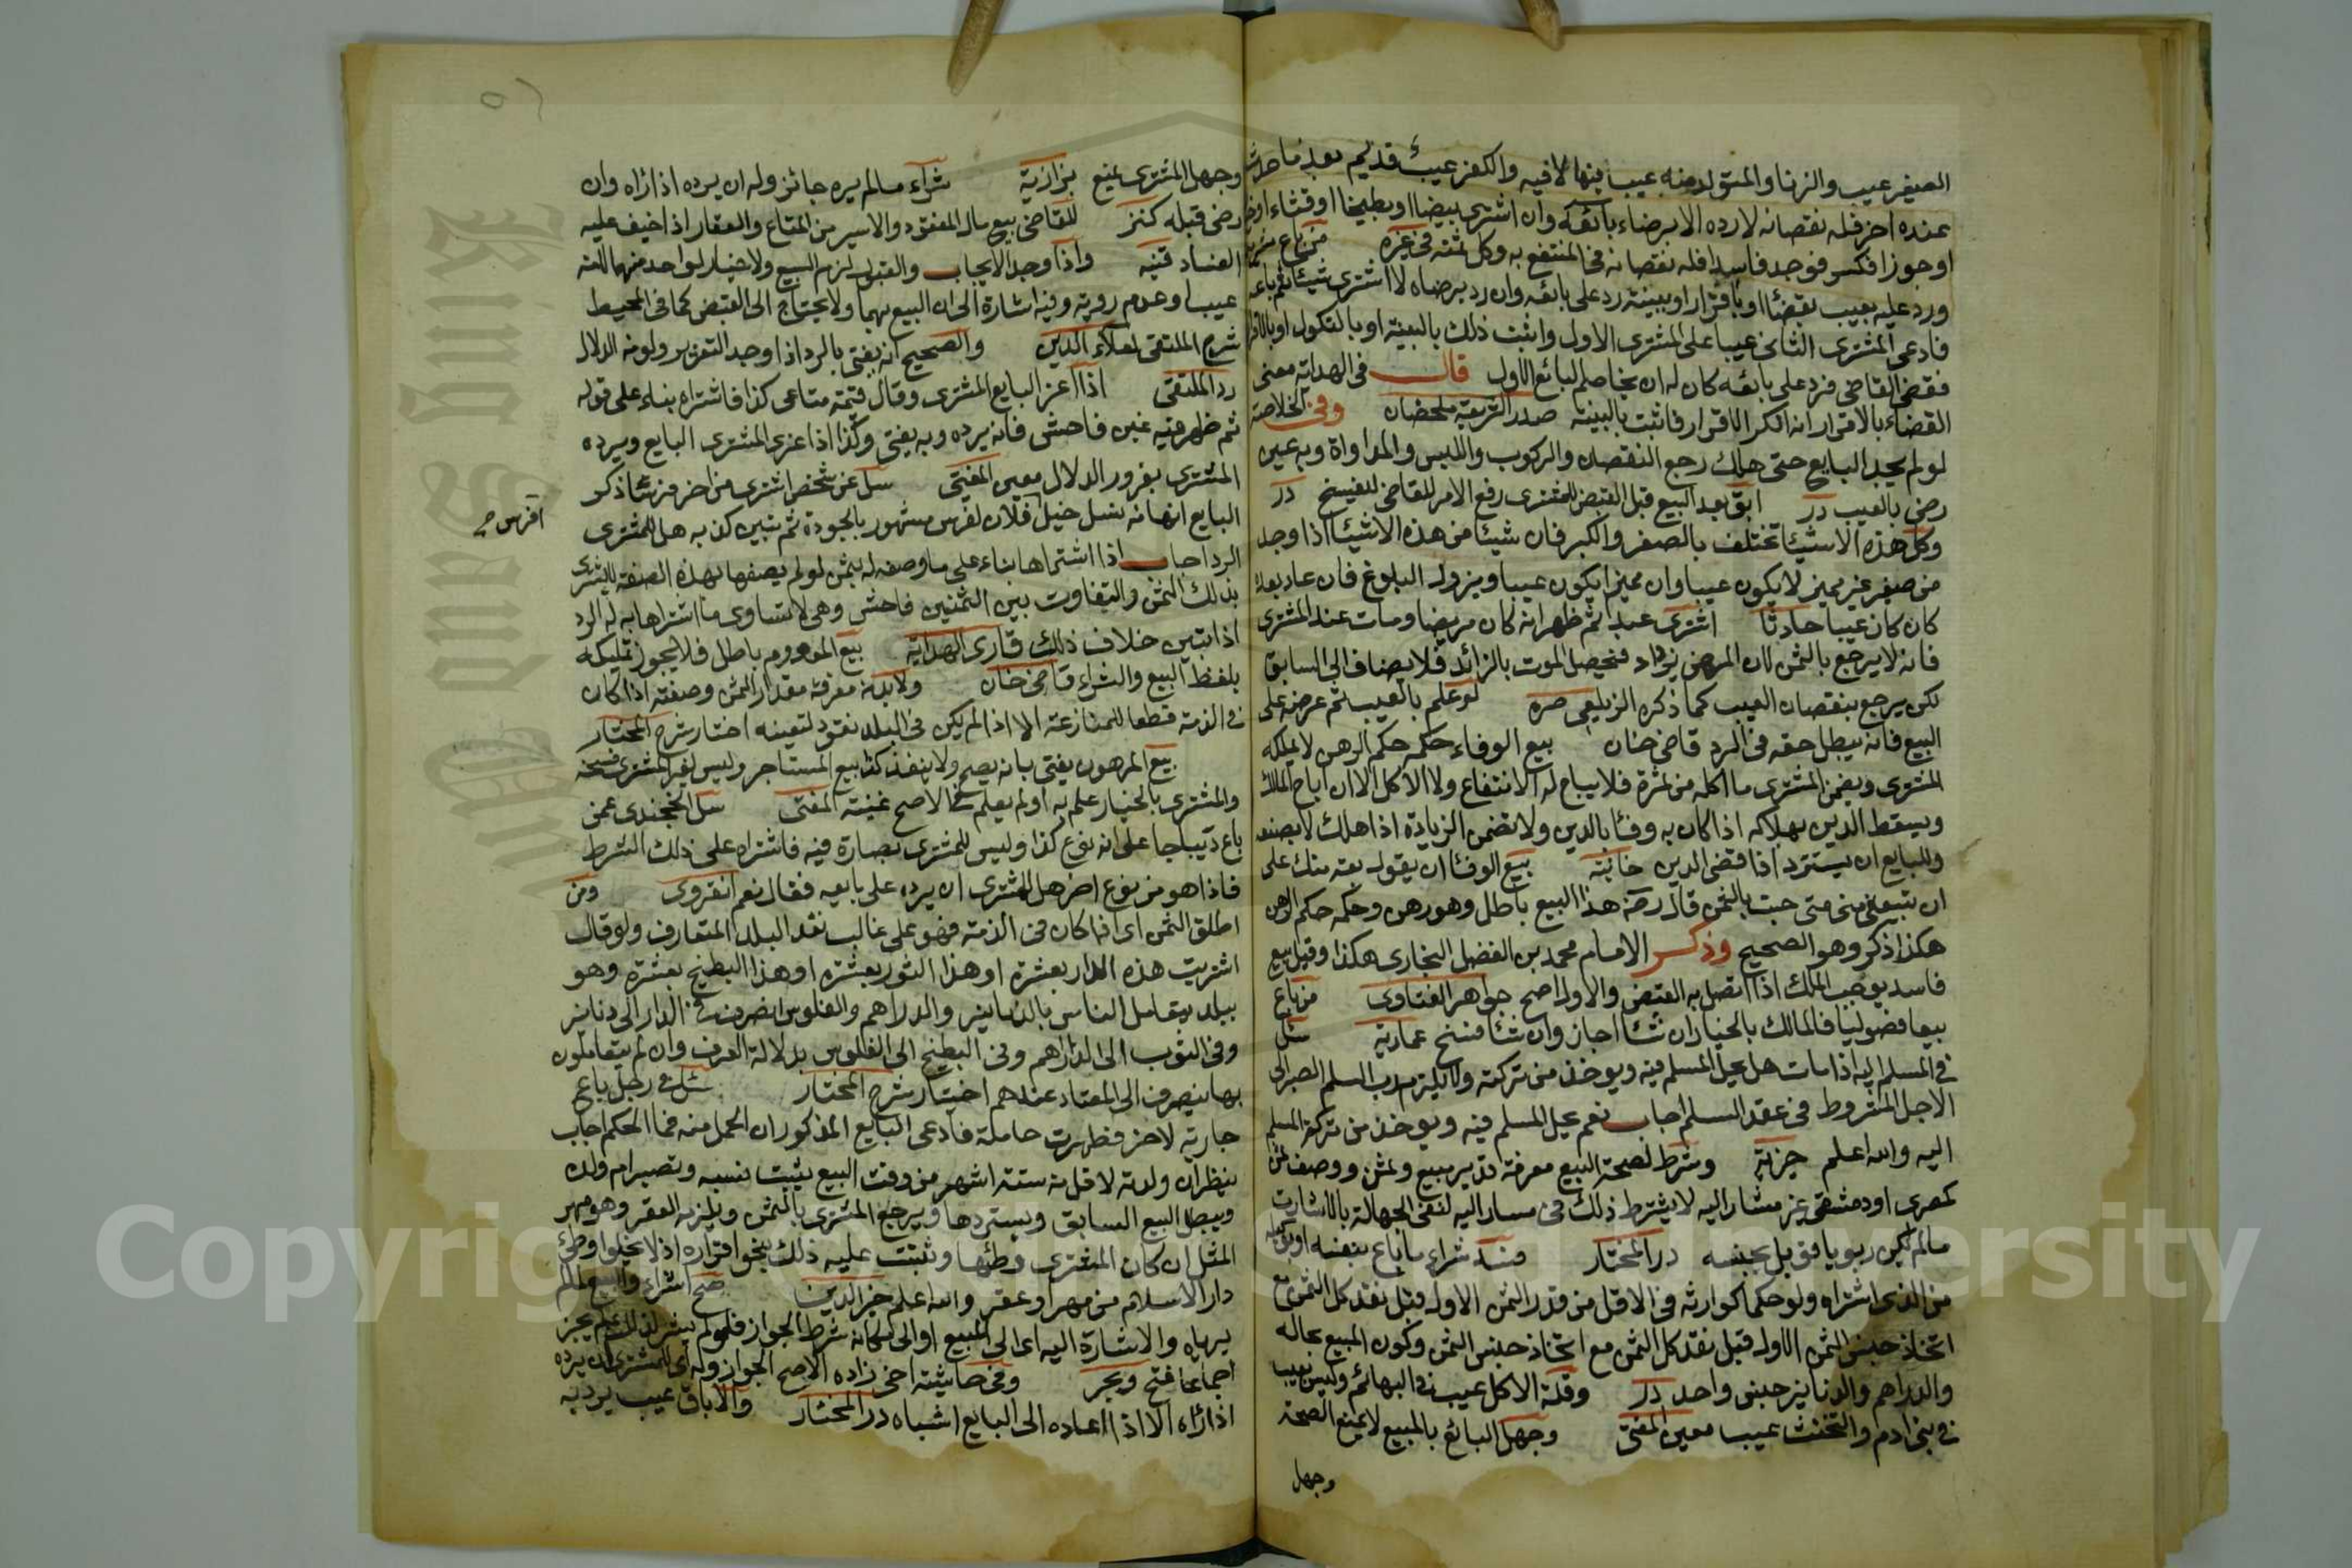 الصغير عيب والزنا والمتولد منه عيب فيها لا فيه والكفر عيب قديم بعد ما حدث
عنده اخر فله نقصانه لا رده الا برضاء بائعه وان اشترى بيضا او بطيخا او قثاء او
او جوزا فكسر فوجد فاسدا فله نقصانه في المنتفع به وكل ثمنه في غيره من باع
ورد عليه بعيب بقضاء او باقرار او ببينة رد على بائعه وان رد برضاه لا اشترى شيئا ثم باعه
فادعى المشترى الثاني عيبا على المشترى الاول واثبت ذلك بالبينة او بالنكول او
فقضى القاضى فرد على بائعه كان له ان يخاصم البائع الاول قال في الهداية معنى
القضاء بالاقرار انه انكر الاقرار فاثبت بالبينة صدر الشريعة وفي الخلاصة
لو لم يجد البايع حتى هلك رجع النقصان والركوب واللبس والمداواة وبه عين
رضى بالعيب در ابق بعد البيع قبل القبض للمشترى رفع الامر للقاضى للفسخ در
وكل هذه الاشيئا تختلف بالصغر والكبر فان شيئا من هذه الاشيئا اذا وجد
من صغير غير مميز لا يكون عيبا وان مميزا يكون عيبا ويزول البلوغ فان عاد بعد
كان كان عيبا حادثا اشترى عبدا ثم ظهر انه كان مريضا ومات عند المشترى
فانه لا يرجع بالثمن لان المرض يزداد فيحصل الموت بالزائد فلا يضاف الى السابق
لكن يرجع بنقصان العيب كما ذكره الزيلعى صره لو علم بالعيب ثم عرضه على
البيع فانه يبطل حقه في الرد قاضى خان بيع الوفاء حكمه حكم الرهن لا يملكه
المشترى ويضمن المشترى ما اكله من ثمرة فلا يباح له الانتفاع ولا الاكل الا ان اباح المالك
ويسقط الدين بهلاكه اذا كان به وفئا بالدين ولا تضمن الزيادة اذا هلك لا بصنعه
وللبايع ان يسترد اذا قضى الدين خانية بيع الوفئا ان يقول بعته منك على
ان تبيعنى منى متى جئت بالثمن قال رحمه هذا البيع باطل وهو رهن وحكمه حكم الرهن
هكذا ذكر وهو الصحيح وذكر الامام محمد بن الفضل البخارى هكذا وقيل بيع
فاسد يوجب الملك اذا اتصل به القبض والاول اصح جواهر الفتاوى من باع
بيعا فضوليا فالمالك بالخيار ان شئا اجاز وان شئا فسخ عمادية سئل
في المسلم اليه اذا مات هل يحل المسلم فيه ويوخذ من تركته ولا يلزم رب السلم الصبر الى
الاجل المشروط في عقد السلم اجاب نعم يحل المسلم فيه ويوخذ من تركة المسلم
اليه والله اعلم خيرية وشرط لصحة البيع معرفة قدر مبيع وثمن ووصف ثمن
كمصرى او دمشقى غير مشار اليه لا يشترط ذلك في مشار اليه لنفى الجهالة بالاشارة
مالم يكن ربويا قوبل بجنسه در المختار فسد شراء ما باع بنفسه او بوكيله
من الذى اشتراه ولو حكما كوارثه في الاقل من قدر الثمن الاول قبل نقد كل الثمن مع
اتخاذ جنس الثمن الاول قبل نقد كل الثمن مع اتخاذ جنس الثمن وكون المبيع بحاله
والدراهم والدنانير جنس واحد در وقلة الاكل عيب في البهائم وليس بعيب
في بنى ادم والتخنث عيب معين المفتى وجهل البائع بالمبيع لا يمنع الصحة
وجهل
وجهل المشترى يمنع بزازية شراء مالم يره جائز وله ان يرده اذا رآه وان
رضى قبله كنز للقاضى بيع مال المفقود والاسير من المتاع والعقار اذا خيف عليه
الفساد قنيه واذا وجد الايجاب والقبول لزم البيع ولا خيار لواحد منهما الا من
عيب او عدم رويته وفيه اشارة الى ان البيع بهما ولا يحتاج الى القبض كما في المحيط
شرح الملتقى لعلاء الدين والصحيح انه يفتى بالرد اذا وجد التغرير ولو من الدلال
رد الملتقى اذا غر البايع المشترى وقال قيمة متاعى كذا فاشتراه بناء على قوله
ثم ظهر فيه غبن فاحش فانه يرده وبه يفتى وكذا اذا غر المشترى البايع ويرده
المشترى بغرور الدلال معين المفتى سئل عن شخص اشترى من اخر فرسا ذكر
البايع انها من نسل خيل فلان لفرس مشهور بالجودة ثم تبين كذبه هل للمشترى
افرس
الرد اجاب اذا اشتراها بناء على ما وصفه له بثمن لو لم يصفها بهذه الصفة لا تشترى
بذلك الثمن والتفاوت بين الثمنين فاحش وهى لا تساوى ما اشتراها به له الرد
اذا تبين خلاف ذلك قارى الهداية بيع المعدوم باطل فلا يجوز تمليكه
بلفظ البيع والشراء قاضى خان ولا بد من معرفة مقدار الثمن وصفته اذا كان
في الذمة قطعا للمنازعة الا اذا لم يكن في البلد نقود لتعينه اختيار شرح المختار
بيع المرهون يفتى بانه يصح ولا ينفذ كذا بيع المستاجر وليس لغير المشترى فسخه
والمشترى بالخيار علم به او لم يعلم في الاصح غنية المفتى سئل الخجندى عمن
باع ديباجا على انه نوع كذا وليس للمشترى بصارة فيه فاشتراه على ذلك الشرط
فاذا هو من نوع اخر هل للمشترى ان يرده على بايعه فقال نعم انقروى ومن
اطلق الثمن اى اذا كان في الذمة فهو على غالب نقد البلد المتعارف ولو قال
اشتريت هذه الدار بعشرة او هذا الثور بعشرة او هذا البطيخ بعشرة وهو
ببلد يتعامل الناس بالدنانير والدراهم والفلوس انصرف في الدار الى دنانير
وفى الثوب الى الدراهم وفى البطيخ الى الفلوس بدلالة العرف وان لم يتعاملون
بها ينصرف الى المعتاد عندهم اختيار شرح المختار سئل في رجل باع
جارية لاخر فظهرت حاملة فادعى البايع المذكور ان الحمل منه فما الحكم اجاب
ينظر ان ولدته لاقل من ستة اشهر من وقت البيع يثبت نسبه وتصير ام ولده
ويبطل البيع السابق ويستردها ويرجع المشترى بالثمن ويلزمه العقر وهو مهر
المثل ان كان المشترى وطئها وثبتت عليه ذلك بنحو اقراره اذ لا يخلوا وطئ
دار الاسلام من مهر او عقر والله اعلم خير الدين صح اشراء والبيع لما لم
يرياه والاشارة اليه اى الى المبيع او الى مكانه شرط الجواز فلو لم يشر لذلك لم يجز
اجماعا فتح وبحر وفى حاشية اخى زاده الاصح الجواز وله اى للمشترى ان يرده
اذا رآه الا اذا اعاده الى البايع اشباه در المختار والاباق عيب يرد به
Copyright © King Saud University
King Saud University